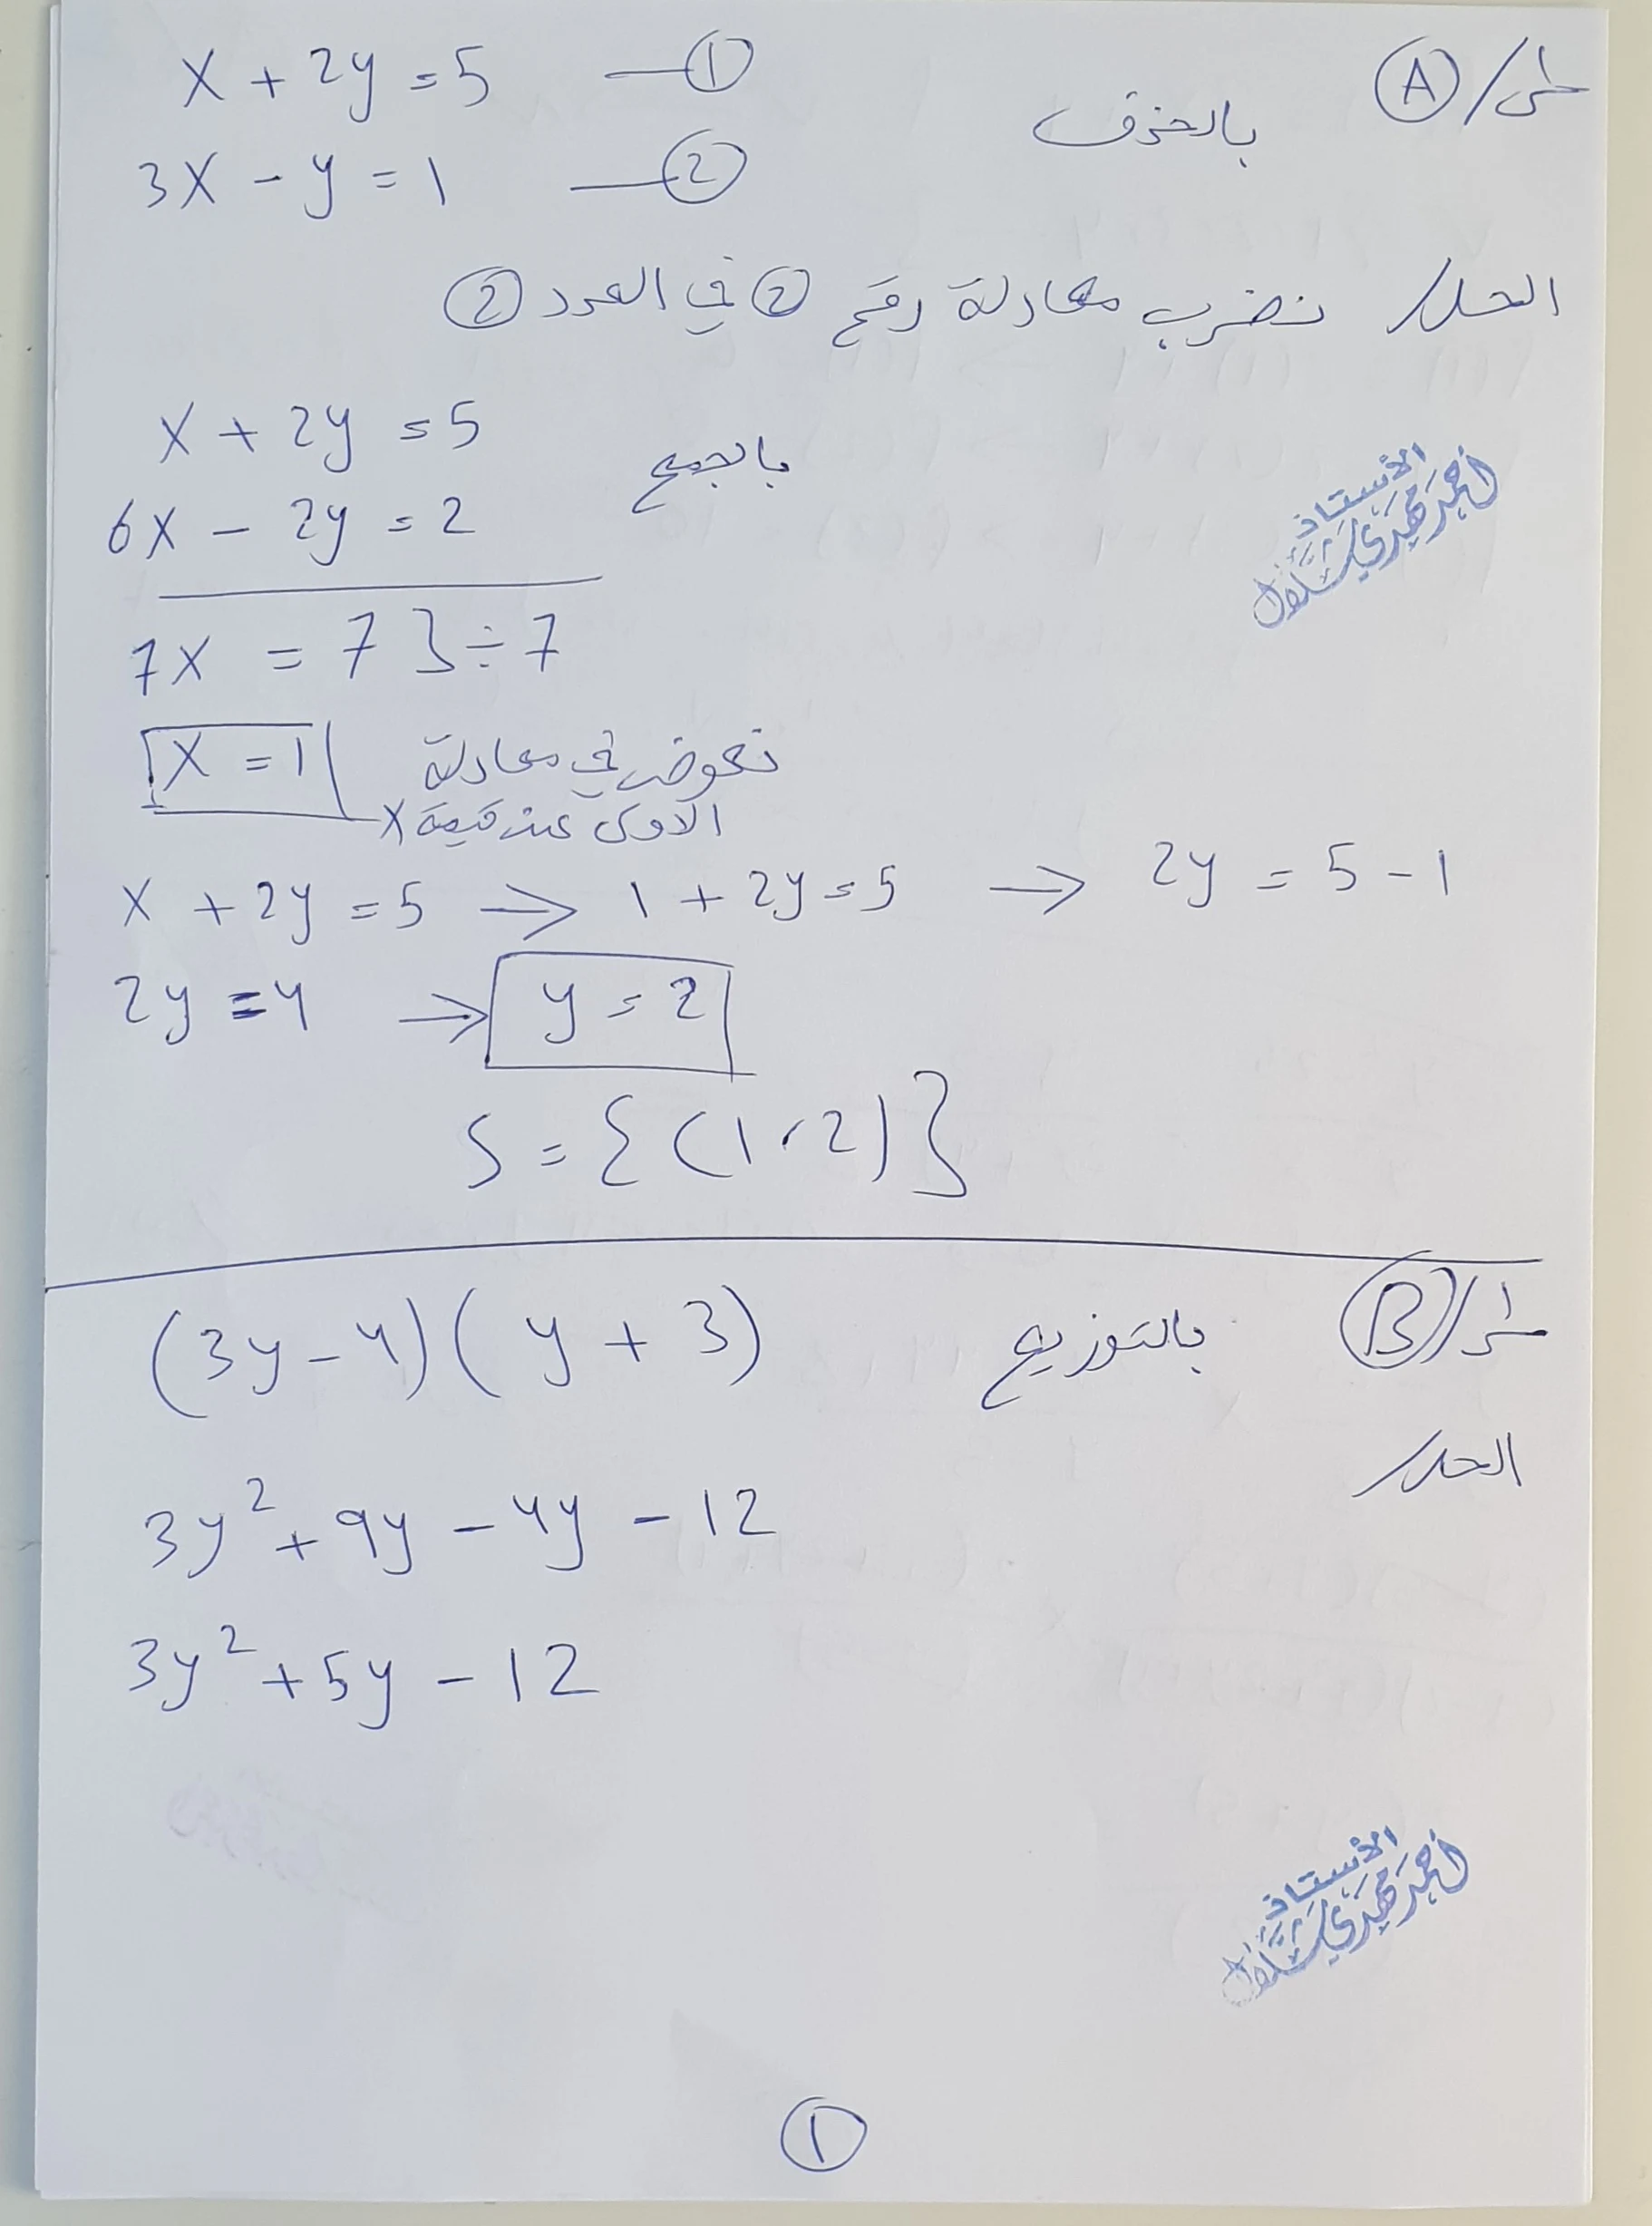 س١/ Ⓐ بالحذف x + 2y = 5 —①
3x - y = 1 —②
الحل/ نضرب معادلة رقم ② في العدد ②
x + 2y = 5
بالجمع
6x - 2y = 2
7x = 7 } ÷ 7
x = 1 نعوض في معادلة
الاولى عن قيمة x
x + 2y = 5 → 1 + 2y = 5 → 2y = 5 - 1
2y = 4 → y = 2
S = {(1،2)}
الأستاذ
أحمد مهدي شلال
س١/ Ⓑ بالتوزيع (3y - 4)(y + 3)
الحل/
3y² + 9y - 4y - 12
3y² + 5y - 12
الأستاذ
أحمد مهدي شلال
①